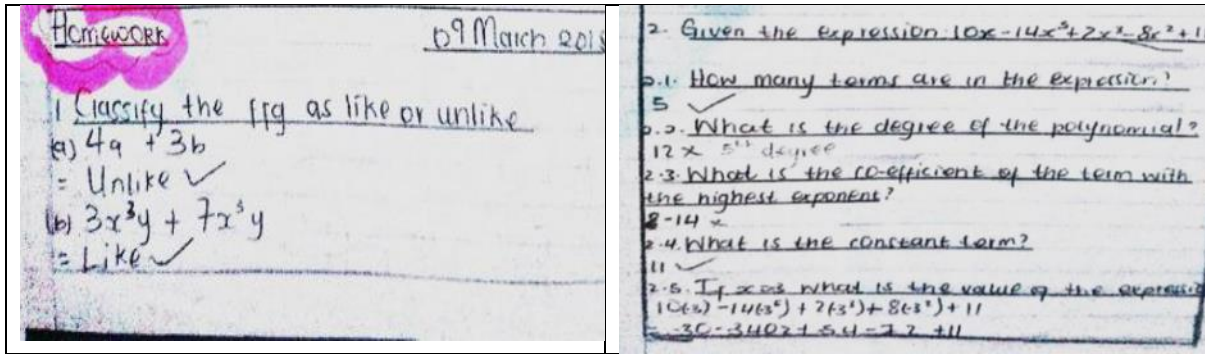 Homework
09 March 2018
1 Classify the ffg as like or unlike
(a) 4a + 3b
= Unlike ✓
(b) 3x³y + 7x³y
= Like ✓
2. Given the expression: 10x - 14x⁵ + 2x³ - 8x² + 11
2.1. How many terms are in the expression?
5 ✓
2.2. What is the degree of the polynomial?
12 x 5th degree
2.3. What is the co-efficient of the term with
the highest exponent?
8-14 x
2.4. What is the constant term?
11 ✓
2.5. If what is the value of the
+ 11
= -30 - 3402 + 54 - 72 + 11